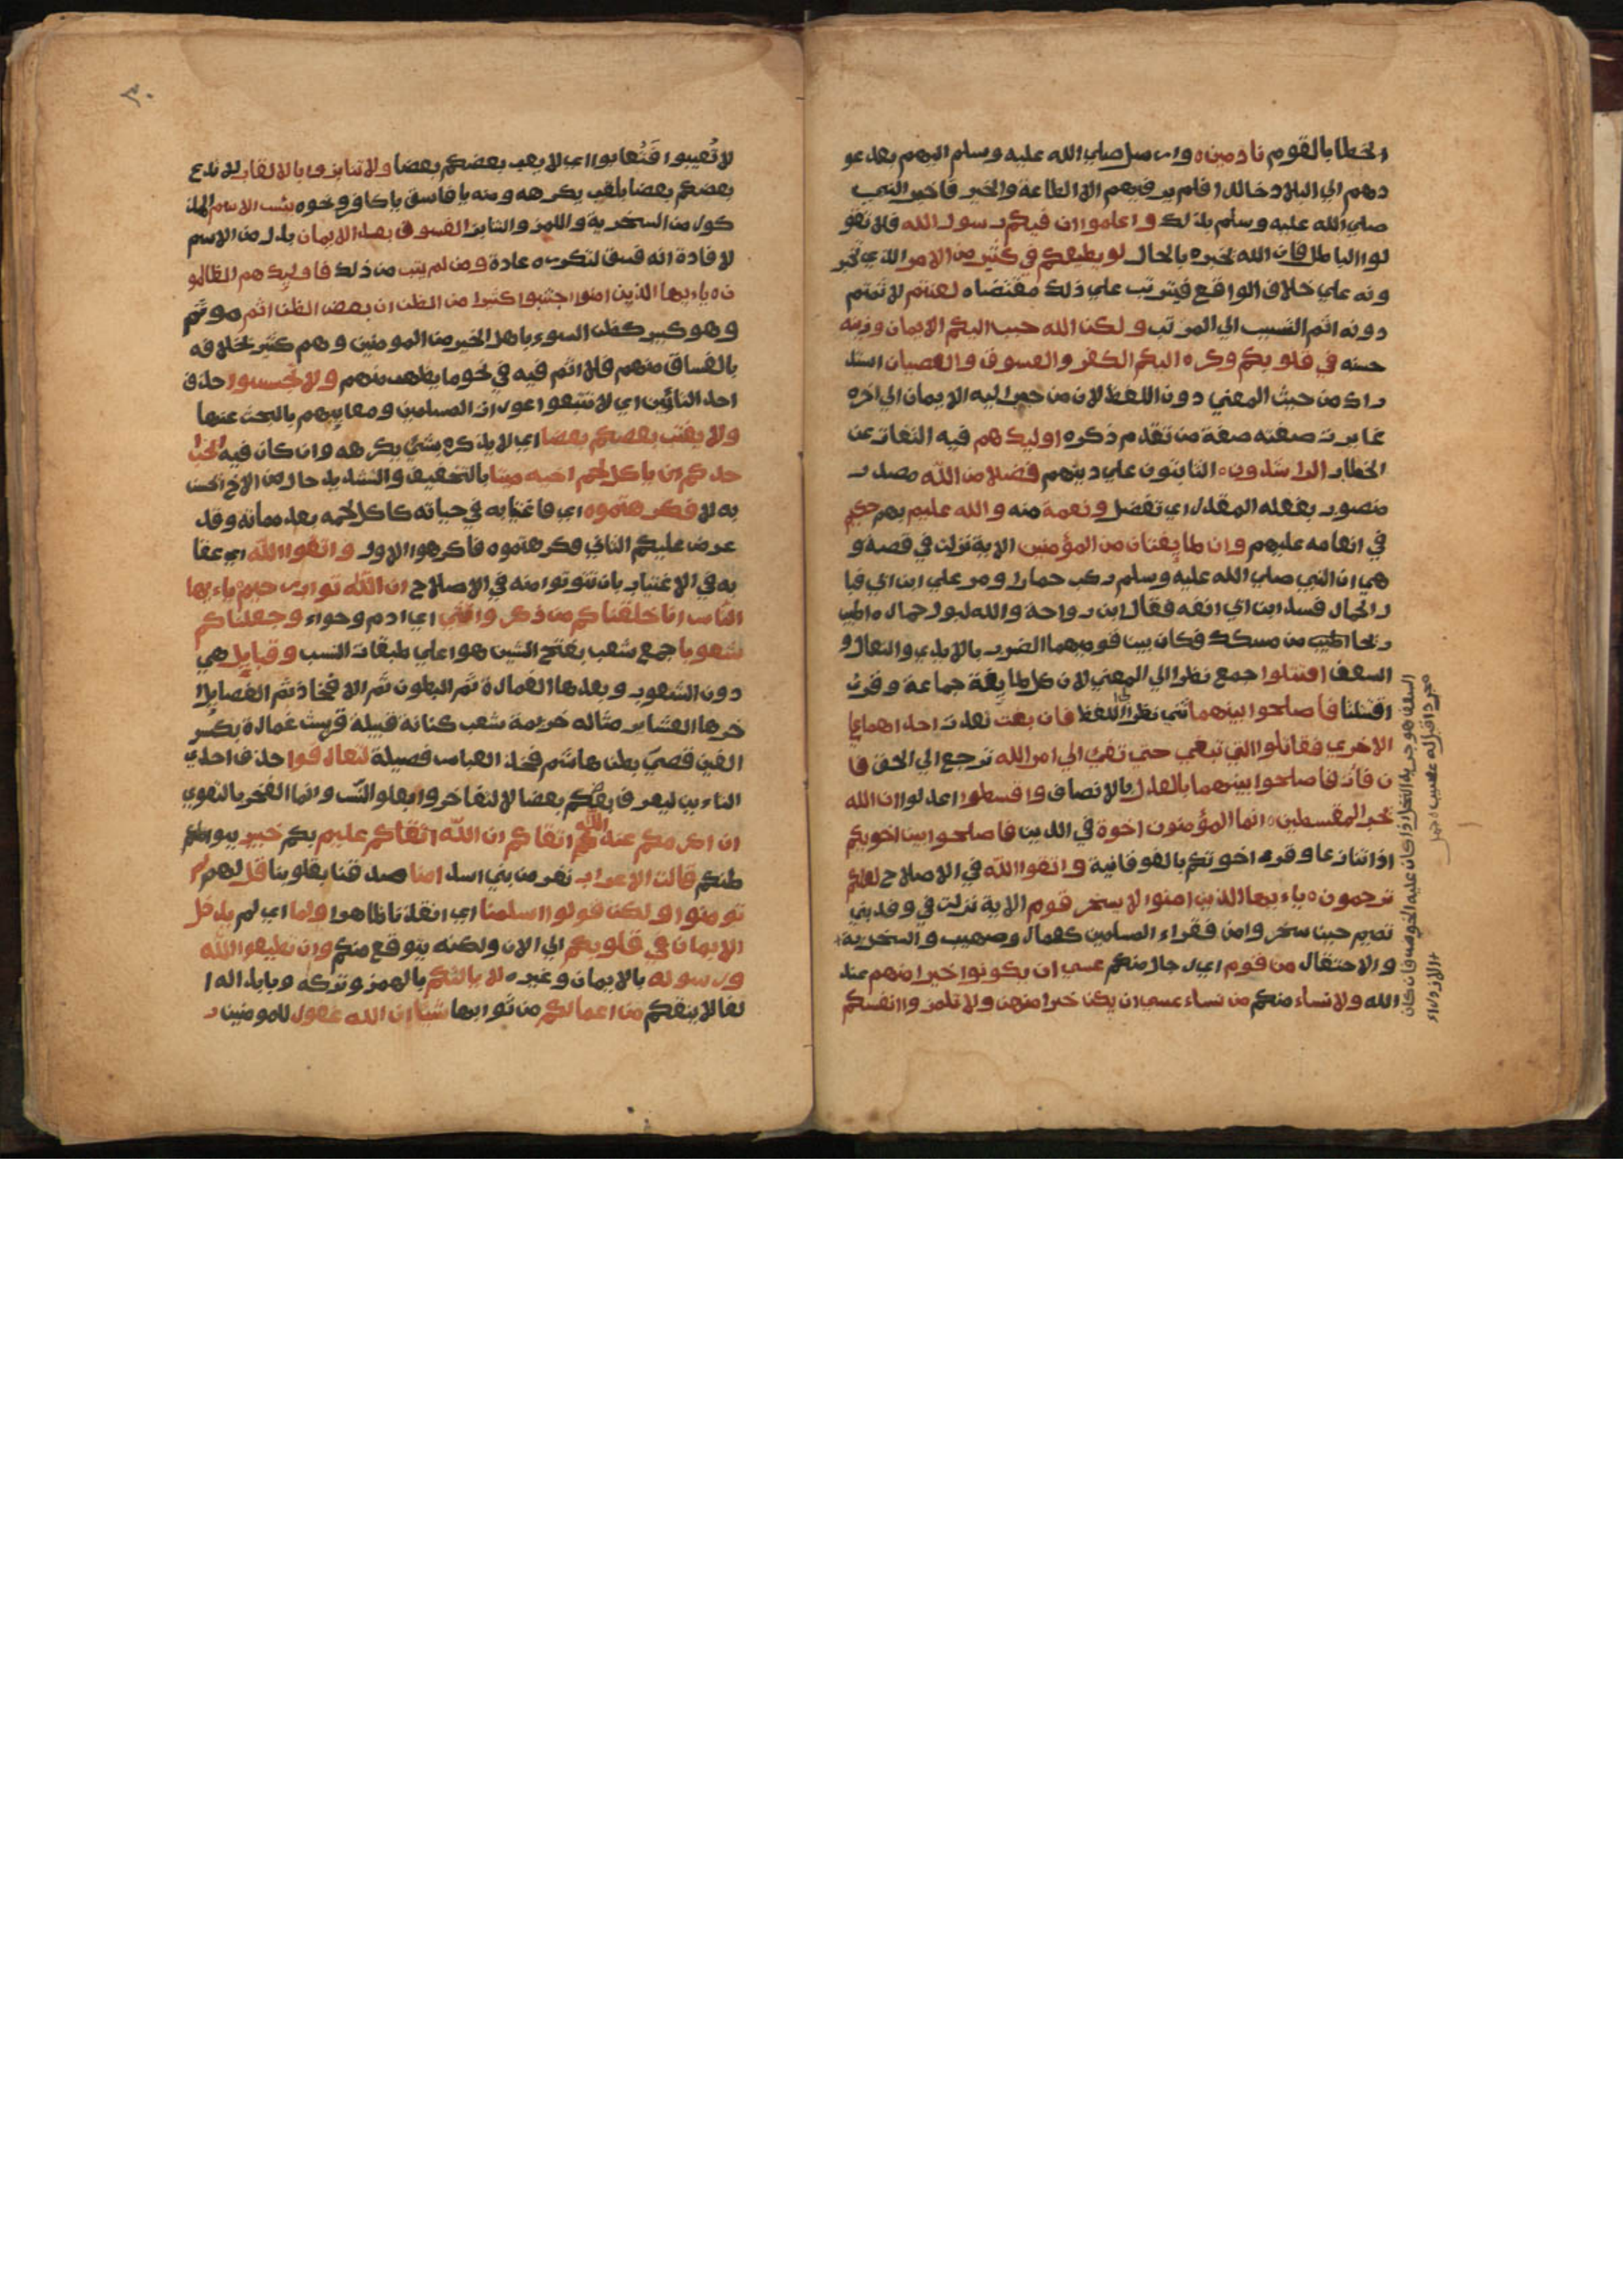 الخطا بالقوم نادمين ه وارسل صلي الله عليه وسلم اليهم بعد عو
دهم الي البلاد خالدا فلم ير فيهم الا الطاعة والخير فاخبر النبي
صلي الله عليه وسلم بذلك واعلموا ان فيكم رسول الله فلا تقو
لوا الباطل فان الله يخبره بالحال لو يطيعكم في كثير من الامر الذي تخبر
ونه علي خلاف الواقع فيترتب علي ذلك مقتضاه لعنتم لاثمتم
دونه اثم التسبب الي المرتب ولكن الله حبب اليكم الايمان وزينه
حسنه في قلوبكم وكره اليكم الكفر والفسوق والعصيان استد
راك من حيث المعني دون اللفظ لان من حبب اليه الايمان الي اخره
غايرت صفته صفة من تقدم ذكره اوليك هم فيه التفات عن
الخطاب الراشدون ه الثابتون علي دينهم فضلا من الله مصدر
منصوب بفعله المقدر اي تفضل ونعمة منه والله عليم بهم حكيم
في انعامه عليهم وان طايفتان من المؤمنين الاية نزلت في قصة و
هي ان النبي صلي الله عليه وسلم ركب حمارا ومر علي ابن ابي فبا
ل الحمار فسد ابن ابي انفه فقال ابن رواحة والله لبول حماره اطيب
ريحا من مسكك فكان بين قوميهما الضرب بالايدي والنعال و
السعف اقتتلوا جمع نظرا الي المعني لان كل طايفة جماعة وقرئ
اقتتلتا فاصلحوا بينهما ثني نظرا الي اللفظ فان بغت تعدت احداهما علي
الاخري فقاتلوا التي تبغي حتي تفئ الي امر الله ترجع الي الحق فا
ن فأت فاصلحوا بينهما بالعدل بالانصاف واقسطوا اعدلوا ان الله
يحب المقسطين ه انما المؤمنون اخوة في الدين فاصلحوا بين اخويكم
اذا تنازعا وقرء اخوتكم بالفوقانية واتقوا الله في الاصلاح لعلكم
ترحمون ه ياءيها الذين امنوا لا يسخر قوم الاية نزلت في وفد بني
تميم حين سخروا من فقراء المسلمين كعمار وصهيب والسخرية
والاحتقار من قوم اي رجال منكم عسي ان يكونوا خيرا منهم عند
الله ولا نساء منكم من نساء عسي ان يكن خيرا منهن ولا تلمزوا انفسكم
السعف هو جريد النخل اذا كان عليه الخوص فان كان
مجردا قيل له عسيب ه جمل
الازدراء
٣٠
لا تُعيبوا فَتُعابوا اي لا يعب بعضكم بعضا ولا تنابزوا بالالقاب لا يدع
بعضكم بعضا بلقب يكرهه ومنه يا فاسق يا كافر ونحوه بئس الاسم المذ
كور من السخرية واللمز والتنابز الفسوق بعد الايمان بدل من الاسم
لافادة انه فسق لتكرره عادة ومن لم يتب من ذلك فاوليك هم الظالمو
ن ه ياءيها الذين امنوا اجتنبوا كثيرا من الظن ان بعض الظن اثم موثم
وهو كبير كظن السوء باهل الخير من المومنين وهم كثير بخلافه
بالفساق منهم فلا اثم فيه في نحو ما يظهر منهم ولا تجسسوا حذف
احد التائين اي لا تتبعوا عورات المسلمين ومعايبهم بالبحث عنها
ولا يغتب بعضكم بعضا اي لا يذكره بشئ يكرهه وان كان فيه ايحب ا
حدكم ان ياكل لحم اخيه ميتا بالتخفيف والتشديد حال من الاخ لا يحسن
به لا فكرهتموه اي فاغتيابه في حياته كاكل لحمه بعد مماته وقد
عرض عليكم الثاني فكرهتموه فاكرهوا الاول واتقوا الله اي عقا
به في الاغتياب بان تتوبوا منه في الاصلاح ان الله تواب رحيم ه ياءيها
الناس انا خلقناكم من ذكر وانثي اي ادم وحواء وجعلناكم
شعوبا جمع شعب بفتح الشين هو اعلي طبقات النسب وقبايل هي
دون الشعوب وبعدها العمارة ثم البطون ثم الافخاذ ثم الفصايل ا
خرها العشاير مثاله خزيمة شعب كنانة قبيلة قريش عمارة بكسر
العين قصي بطن هاشم فخذ العباس فصيلة لتعارفوا حذف احدي
التاءين ليعرف بعضكم بعضا لا لتفاخروا بعلو النسب وانما الفخر بالتقوي
ان اكرمكم عند الله اتقاكم ان الله اتقاكم عليم بكم خبير ببوا
طنكم قالت الاعراب نفر من بني اسد امنا صدقنا بقلوبنا قل لهم لم
تومنوا ولكن قولوا اسلمنا اي انقدنا ظاهرا ولما اي لم يدخل
الايمان في قلوبكم الي الان ولكنه يتوقع منكم وان تطيعوا الله
ورسوله بالايمان وغيره لا يالتكم بالهمز وتركه وبابداله ا
لفا لا ينقصكم من اعمالكم من ثوابها شئا ان الله غفور للمومنين ر